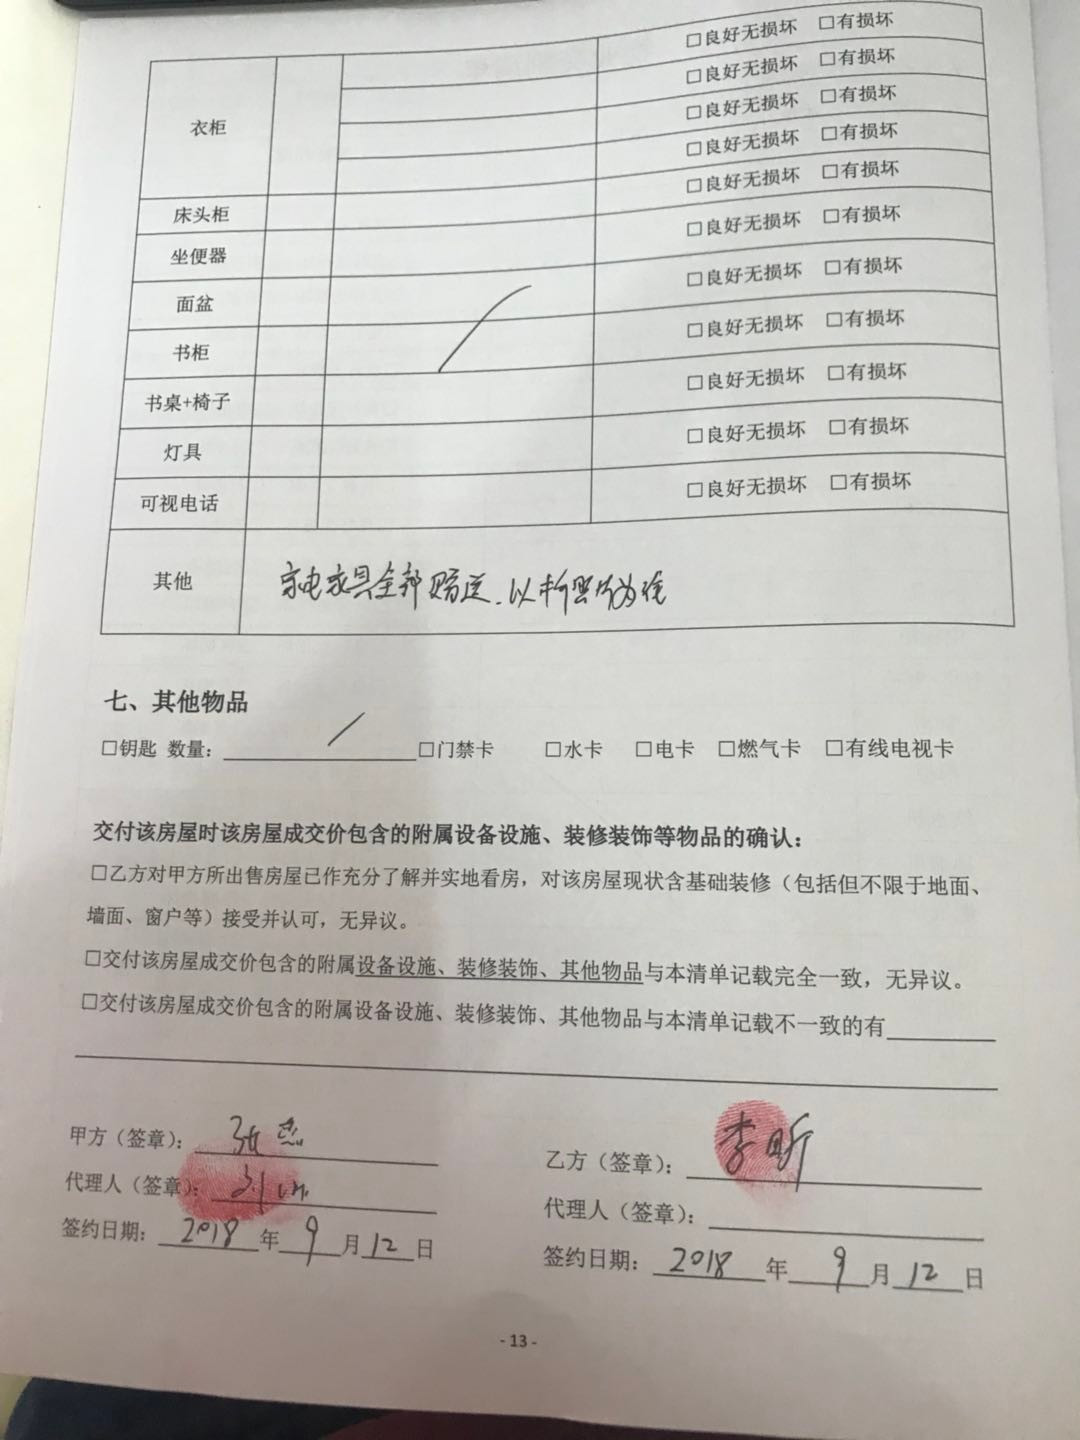 □良好无损坏 □有损坏
□良好无损坏 □有损坏
□良好无损坏 □有损坏
衣柜
□良好无损坏 □有损坏
□良好无损坏 □有损坏
床头柜 □良好无损坏 □有损坏
坐便器 □良好无损坏 □有损坏
面盆 □良好无损坏 □有损坏
书柜 □良好无损坏 □有损坏
书桌+椅子 □良好无损坏 □有损坏
灯具 □良好无损坏 □有损坏
可视电话
其他 家电家具全部赠送、以拍照为准
七、其他物品
□钥匙 数量: / □门禁卡 □水卡 □电卡 □燃气卡 □有线电视卡
交付该房屋时该房屋成交价包含的附属设备设施、装修装饰等物品的确认:
□乙方对甲方所出售房屋已作充分了解并实地看房，对该房屋现状含基础装修（包括但不限于地面、
墙面、窗户等）接受并认可，无异议。
□交付该房屋成交价包含的附属设备设施、装修装饰、其他物品与本清单记载完全一致，无异议。
□交付该房屋成交价包含的附属设备设施、装修装饰、其他物品与本清单记载不一致的有
甲方（签章）: 张
乙方（签章）: 李昕
代理人（签章）: 刘
代理人（签章）:
签约日期: 2018 年 9 月 12 日
签约日期: 2018 年 9 月 12 日
- 13 -